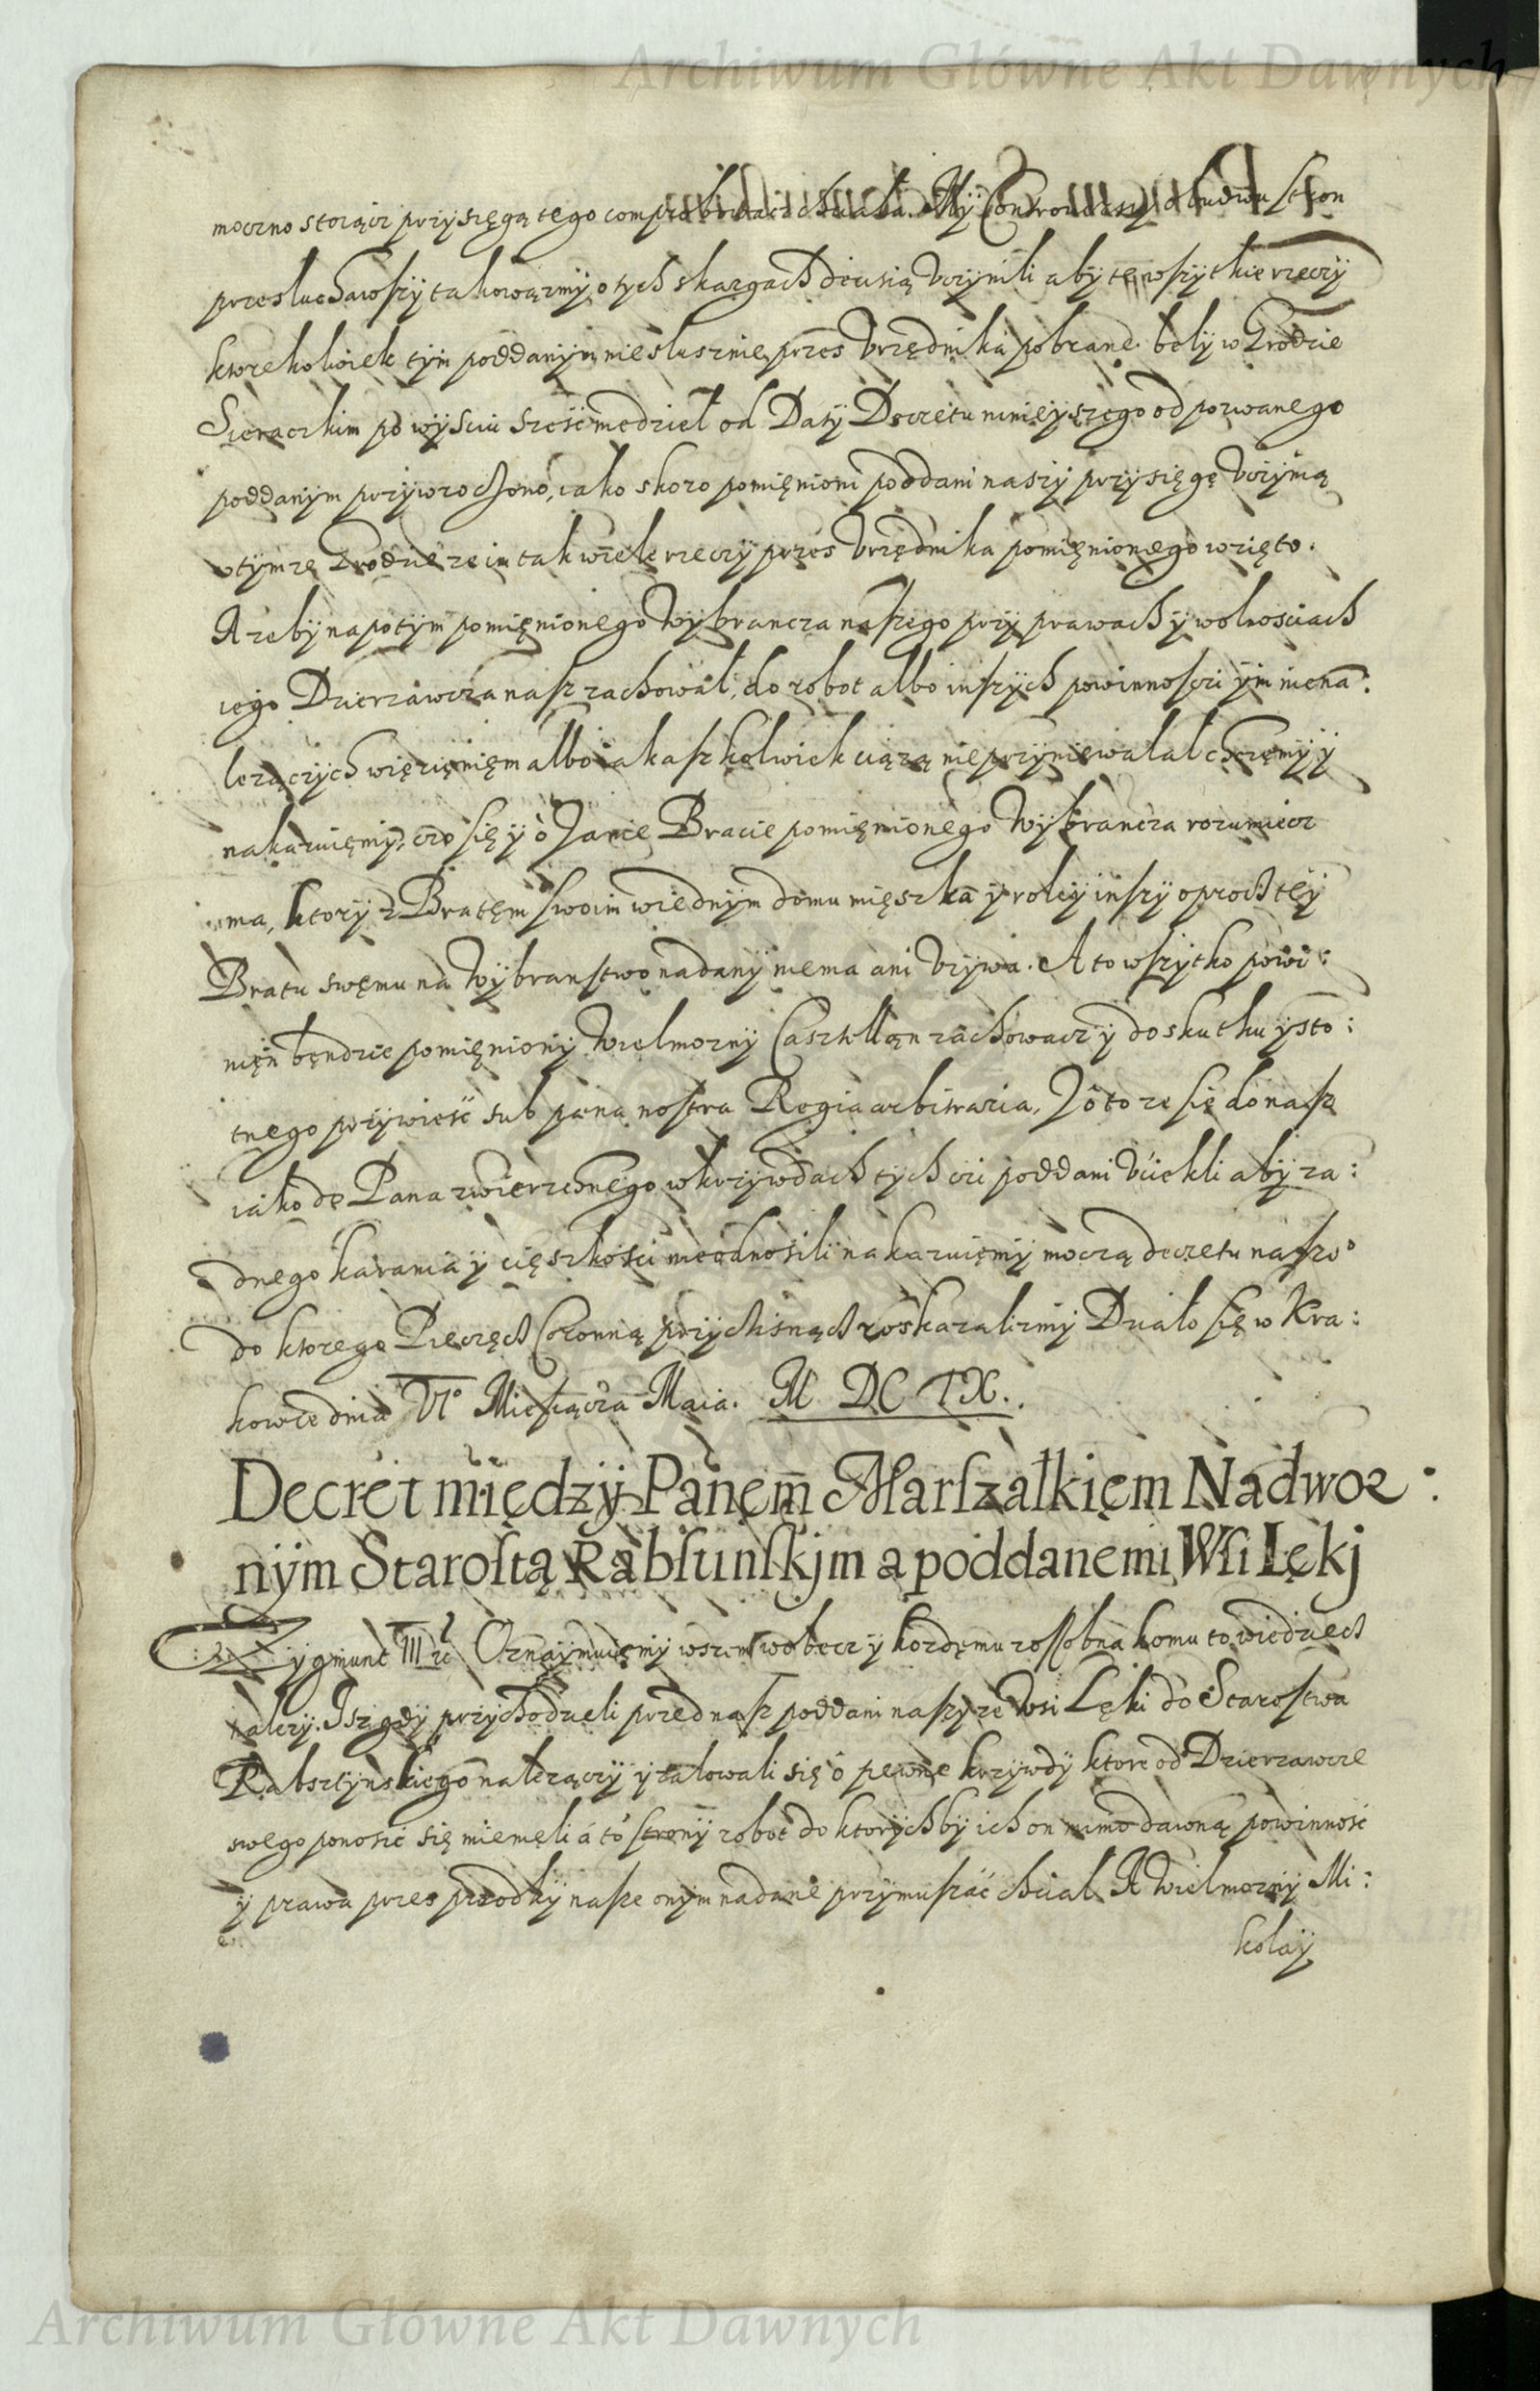 Archiwum Główne Akt Dawnych
moczno stoiącz przysięgą tego comprobowacz chciała. My Controwersy obudwu stron
przesłuchawszy takowąmy o tych skargach decisią uczynili aby te wszytkie rzeczy
ktorekolwiek tym poddanym niesłusznie przes Urzędnika pobrane beły w Grodzie
Sieraczkim po wysciu szesci niedziel od Daty Decretu ninieyszego od pozwanego
poddanym przywrochono, iako skoro pomięnioni poddani naszy przysięgę uczynią
w tymze Grodzie ze im tak wiele rzeczy przes Urzędnika pomięnionego wzięto.
A zeby napotym pomięnionego Wybrancza naszego przy prawach y wolnosciach
iego Dzierzawcza nasz zachował, do robot albo inszych powinnosczi ym niena:
lezączych więzięnięm albo iakasz kolwiek ciązą nieprzyniewalał chczemy y
nakazuięmy, czo się y o Janie Bracie pomięnionego Wybrancza rozumiecz
ma, ktory z Bratęm swoim w iednym domu mięszka y roley inszy oproch tey
Bratu swęmu na Wybranstwo nadany niema ani uzywa. A to wszytko powi:
nięn będzie pomięniony Wielmozny Casztellan zachowacz y do skutku ysto:
tnego przywiesć sub pæna nostra Regia arbitraria, Jo to ze się do nasz
iako do Pana zwierzchnego w krzywdach tych czi poddani uciekli aby za:
dnego karania y cięszkosci nieodnosili nakazuięmy moczą decretu naszeo
do ktorego Pieczęch Coronną przychisnąch roskazalizmy Działo się w Kra:
kowie dnia VIo Miesiącza Maia. M DC IX.
Decret między Panem Marszałkięm Nadwor:
nym Starostą Rabsztinskjm a poddanemi Wsi Lękj
Zygmunt III etc Oznaymuięmy wszem wobecz y kozdęmu zossobna komu to wiedziech
nalezy. Isz gdy przychodzieli przed nasz poddani naszy ze Wsi Lęki do Starostwa
Rabsztynskiego nalezączy y załowali się o pewne krzywdy ktore od Dzierzawcze
swego ponosić się mienięli a to strony robot do ktorychby ich on mimo dawną powinnosć
y prawa przes przodky nasze onym nadane przymuszać chciał. A Wielmozny Mi:
kolay
Archiwum Główne Akt Dawnych